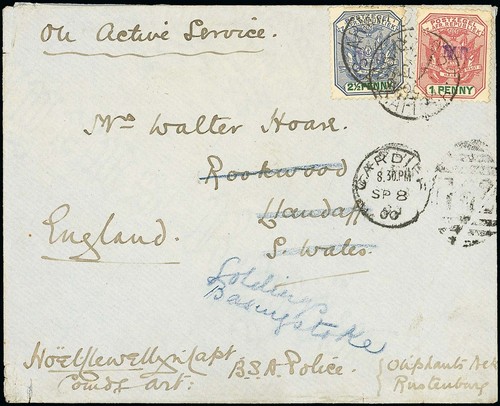 On Active Service.
2½ PENNY
1 PENNY
Mrs Walter Hoare
Rookwood
CARDIFF
8.30 PM
SP 8
00
Llandaff
England.
S. Wales
Goldings
Basingstoke
Hoël Llewellyn Capt
B.S.A. Police.
Oliphants Nek
Comdg Art:
Rustenburg